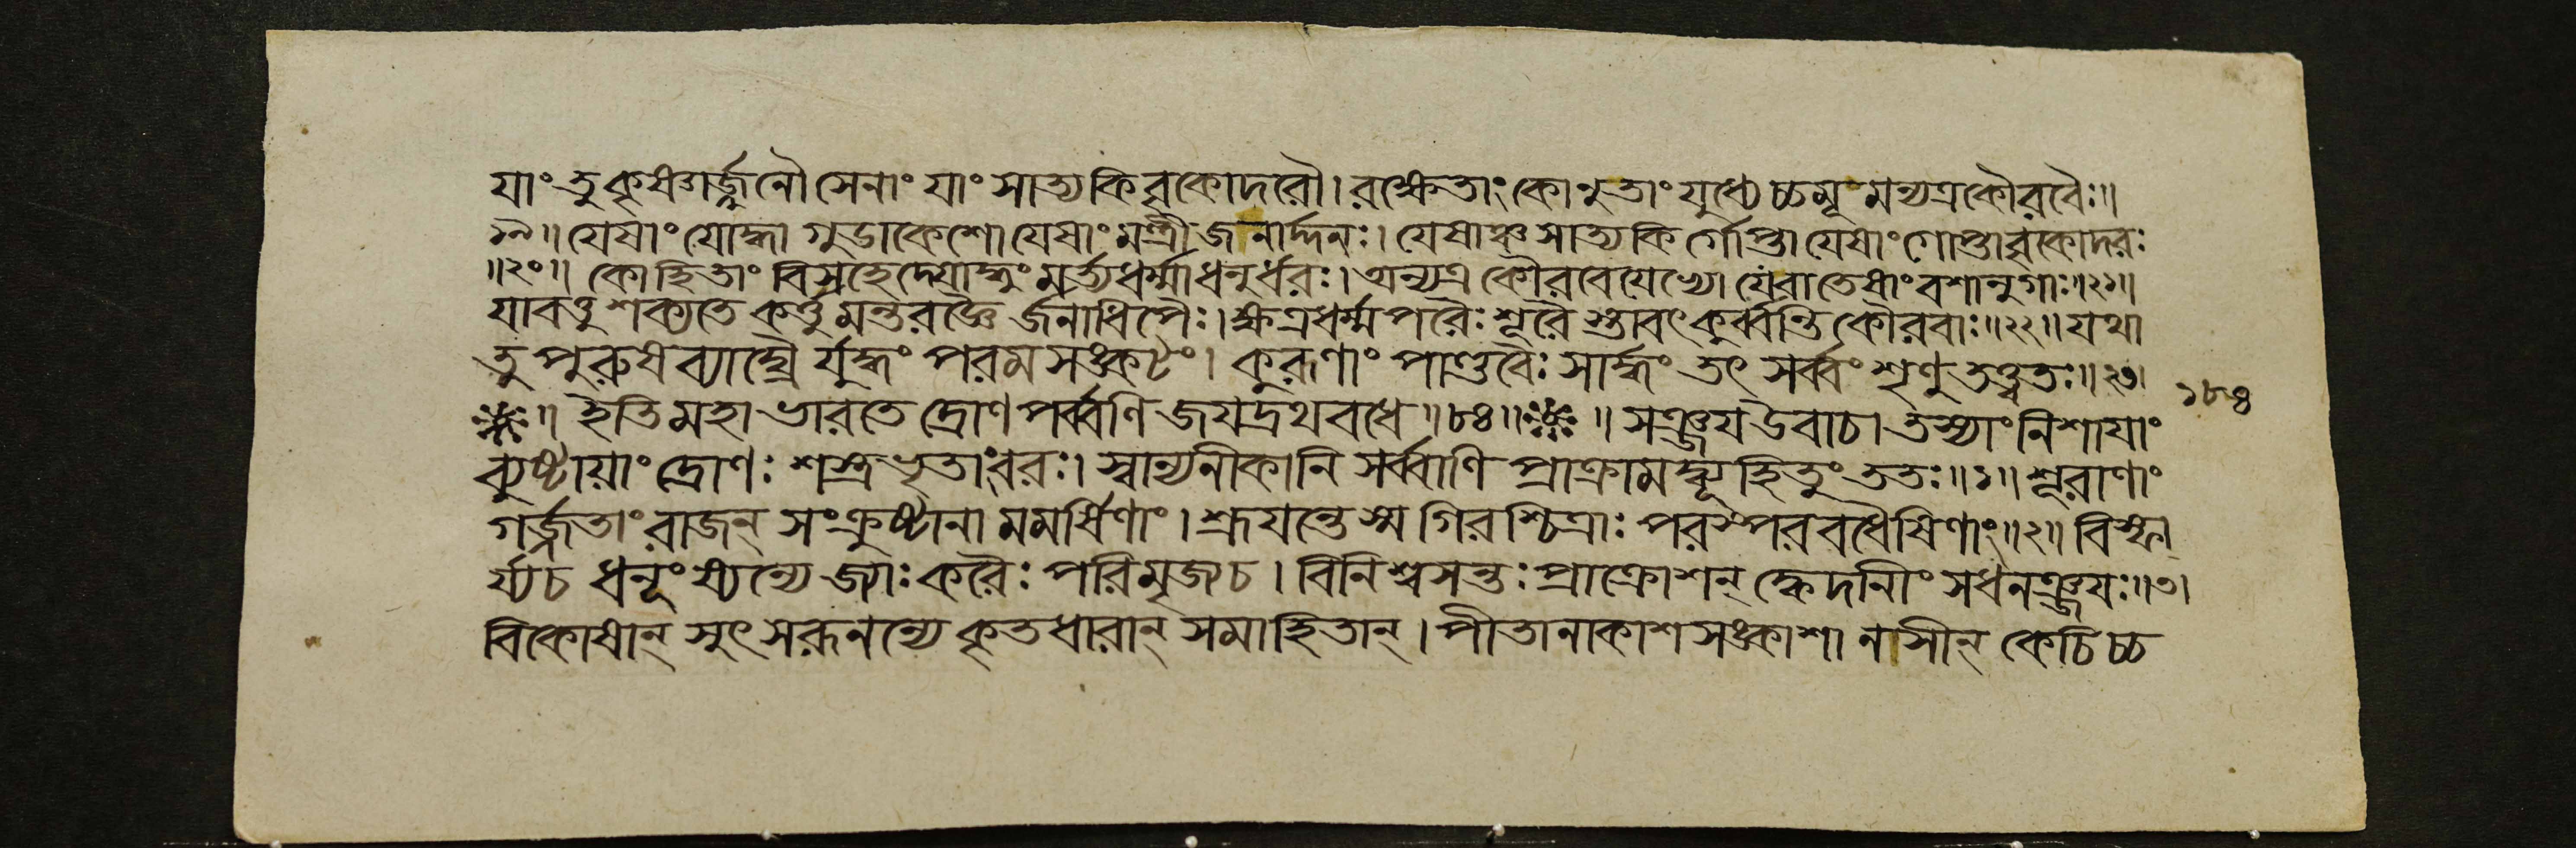 যাং তু কৃষ্ণার্জ্জুনৌ সেনাং যাং সাত্যকিবৃকোদরৌ। রক্ষেতাং কোনুতাং যুধ্যেচ্চমূমন্যত্রকৌরবৈঃ॥
১৯॥ যেষাং যোদ্ধা গুডাকেশো যেষাং মন্ত্রী জনার্দ্দনঃ। যেষাঞ্চ সাত্যকি র্গোপ্তা যেষাং গোপ্তা বৃকোদরঃ
॥২০॥ কোহিতাং বিসহেদ্যোদ্ধুং মর্ত্যধর্ম্মা ধনুর্ধরঃ। অন্যত্র কৌরবেয়েভ্যো যেবাতেষাং বশানুগাঃ॥২১॥
যাবত্তু শক্যতে কর্ত্তুমন্তরজ্ঞৈ র্জনাধিপৈঃ। ক্ষত্রধর্ম্মপরৈঃ শূরৈ স্তাবৎ কুর্ব্বন্তি কৌরবাঃ॥২২॥ যথা
তু পুরুষব্যাঘ্রৈ র্যুদ্ধং পরমসঙ্কটং। কুরূণাং পাণ্ডবৈঃ সার্দ্ধং তৎ সর্ব্বং শৃণু তত্ত্বতঃ॥২৩। ১৮৪
॥ ইতি মহাভারতে দ্রোণপর্ব্বণি জয়দ্রথবধে॥৮৪॥ ॥ সঞ্জয উবাচ। তস্যাং নিশাযাং
ব্যুষ্টায়াং দ্রোণঃ শস্ত্রভৃতাংবরঃ। স্বান্যনীকানি সর্ব্বাণি প্রাক্রামদ্ব্যূহিতুং ততঃ॥১॥ শূরাণাং
গর্জ্জতাং রাজন্ সংক্রুষ্টানা মমর্ষিণাং। শ্রূযন্তেস্ম গিরশ্চিত্রাঃ পরস্পরবধৈষিণাং॥২॥ বিস্ফা
র্য্যচ ধনূংষ্যন্যে জ্যাঃ করৈঃ পরিমৃজ্যচ। বিনিশ্বসন্তঃ প্রাক্রোশন্ ক্বেদানীং সধনঞ্জযঃ॥৩।
বিকোষান্ সুৎসরূনন্যে কৃতধারান্ সমাহিতান্। পীতানাকাশসঙ্কাশা নসীন্ কেচিচ্চ